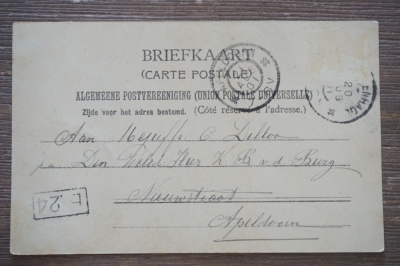 BRIEFKAART
(CARTE POSTALE)
ALGEMEENE POSTVEREENIGING (UNION POSTALE UNIVERSELLE)
Zijde voor het adres bestemd. (Côté réservé à l'adresse.)
Aan
Den Weled Heer K. B. v. d. Burg
Nieuwstraat
Apeldoorn
24